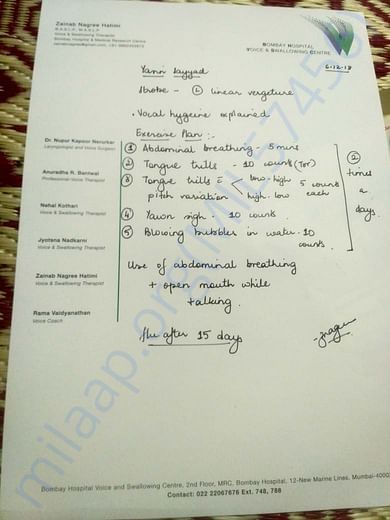 Zainab Nagree Hatimi
M.A.S.L.P., B.A.S.L.P
Voice & Swallowing Therapist
Bombay Hospital & Medical Research Centre
BOMBAY HOSPITAL
VOICE & SWALLOWING CENTRE
6-12-18
Sayyad
Strobe - (L) linear vergeture
. Vocal hygeine explained
Exercise Plan :-
① Abdominal breathing - 5 mins
② Tongue trills - 10 counts (Tor)
③ Tongue trills c̄ pitch variation < low-high high-low 5 counts each
④ Yawn sigh - 10 counts
⑤ Blowing bubbles in water - 10 counts
② times a days.
Use of abdominal breathing
+ open mouth while
talking.
flu after 15 days
Dr. Nupur Kapoor Nerurkar
Laryngologist and Voice Surgeon
Anuradha R. Bantwal
Professional Voice Therapist
Nehal Kothari
Voice & Swallowing Therapist
Jyotsna Nadkarni
Voice & Swallowing Therapist
Zainab Nagree Hatimi
Voice & Swallowing Therapist
Rama Vaidyanathan
Voice Coach
Bombay Hospital Voice and Swallowing Centre, 2nd Floor, MRC, Bombay Hospital, 12-New Marine Lines, Mumbai-4000
Contact: 022 22067676 Ext. 748, 788